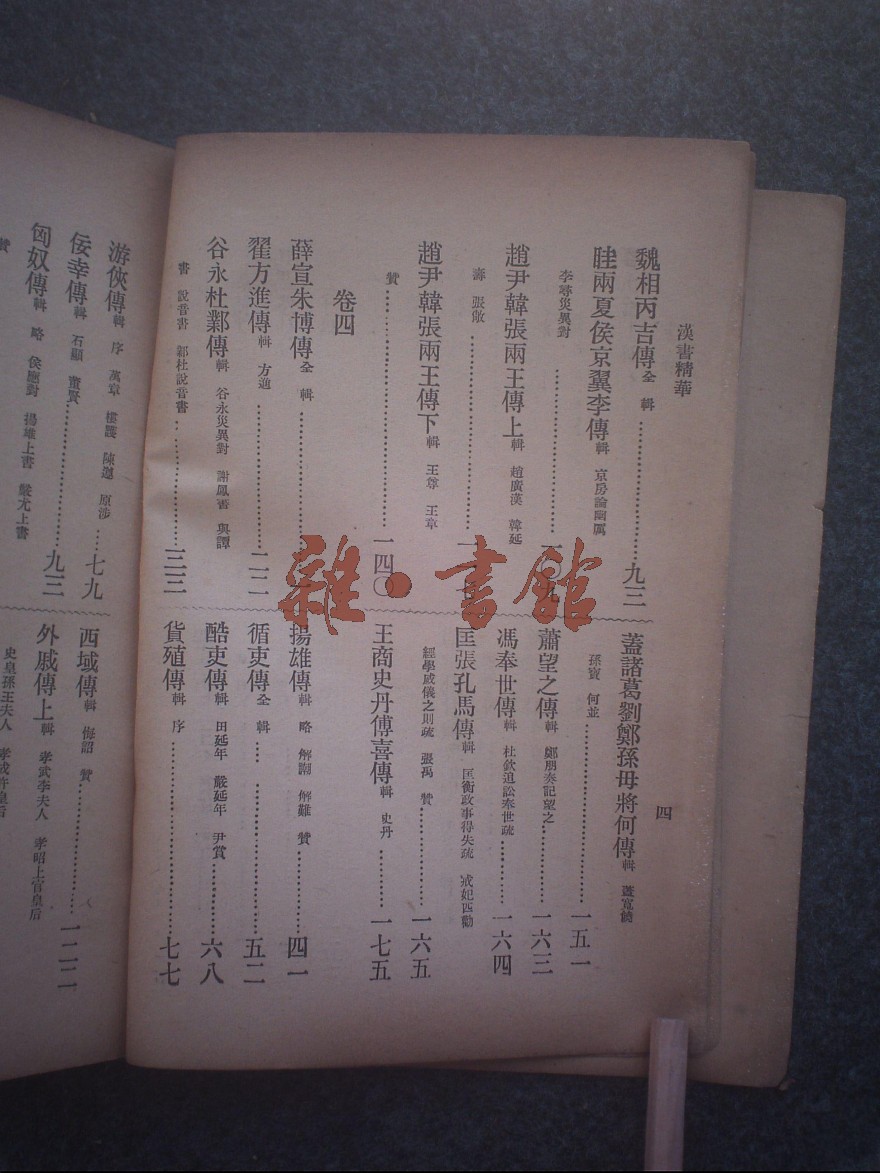 漢書精華
四
魏相丙吉傳 全 輯 九三
眭兩夏侯京翼李傳 輯 京房論幽厲
李尋災異對
趙尹韓張兩王傳上 輯 趙廣漢 韓延
壽 張敞
趙尹韓張兩王傳下 輯 王尊 王章
贊 一四〇
卷四
薛宣朱博傳 全 輯
翟方進傳 輯 方進 二二
谷永杜鄴傳 輯 谷永災異對 謝鳳書 與譚
書 說音書 鄴杜說音書 三三
蓋諸葛劉鄭孫毋將何傳 輯 蓋寬饒
孫寶 何並 一五一
蕭望之傳 輯 鄭朋奏記望之 一六三
馮奉世傳 輯 杜欽追訟奉世疏 一六四
匡張孔馬傳 輯 匡衡政事得失疏 戒妃匹勸
經學威儀之則疏 張禹 贊 一六五
王商史丹傅喜傳 輯 史丹 一七五
揚雄傳 輯 略 解嘲 解難 贊 四一
循吏傳 全 輯 五二
酷吏傳 輯 田延年 嚴延年 尹賞 六八
貨殖傳 輯 序 七七
游俠傳 輯 序 萬章 樓護 陳遵 原涉 七九
佞幸傳 輯 石顯 董賢 九三
匈奴傳 輯 略 侯應對 揚雄上書 嚴尤上書
贊
西域傳 輯 悔詔 贊 一二二
外戚傳上 輯 孝武李夫人 孝昭上官皇后
史皇孫王夫人 孝成許皇后
雜·書館